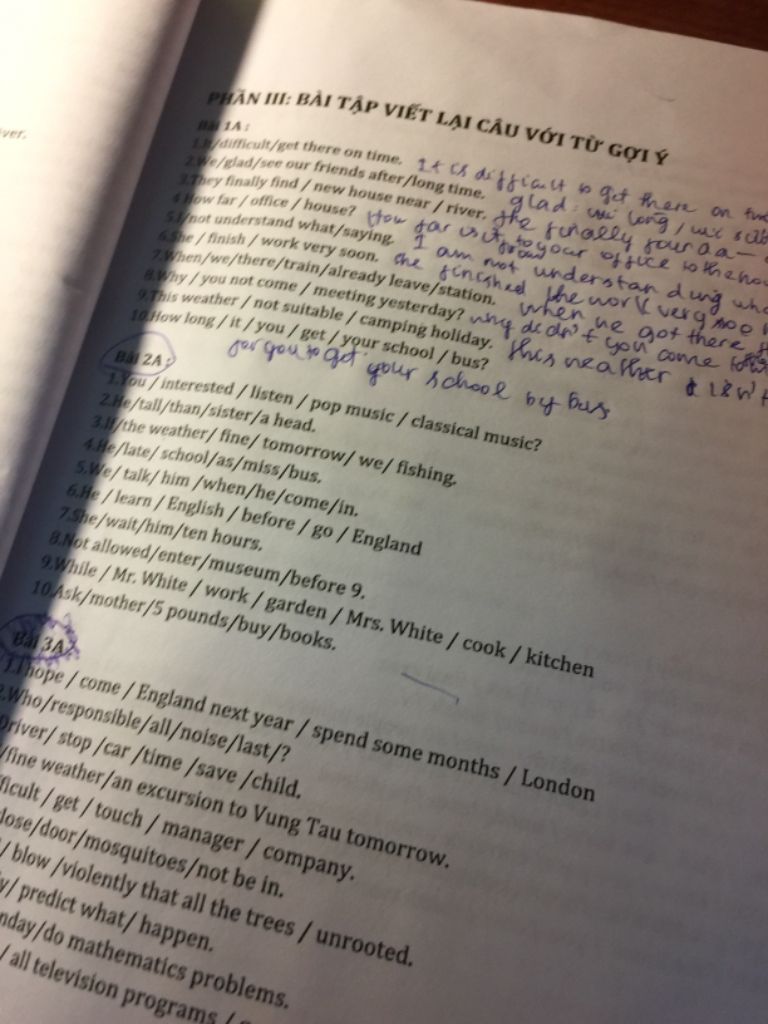 iver.
PHẦN III: BÀI TẬP VIẾT LẠI CÂU VỚI TỪ GỢI Ý
Bài 1A :
1.It/difficult/get there on time. It is difficult to get there on
2.We/glad/see our friends after/long time. glad
3.They finally find / new house near / river. finally found a
4.How far / office / house? How far is it to your office to the
5.I/not understand what/saying. I am not understanding
6.She / finish / work very soon. She finished the work very soo
7.When/we/there/train/already leave/station. when we got there
8.Why / you not come / meeting yesterday? why didn't you come to
9.This weather / not suitable / camping holiday. this weather isn't
10.How long / it / you / get / your school / bus?
for you to get your school by bus
Bài 2A :
1.You / interested / listen / pop music / classical music?
2.He/tall/than/sister/a head.
3.If/the weather/ fine/ tomorrow/ we/ fishing.
4.He/late/ school/as/miss/bus.
5.We/ talk/ him /when/he/come/in.
6.He / learn / English / before / go / England
7.She/wait/him/ten hours.
8.Not allowed/enter/museum/before 9.
9.While / Mr. White / work / garden / Mrs. White / cook / kitchen
10.Ask/mother/5 pounds/buy/books.
Bài 3A
1.I hope / come / England next year / spend some months / London
2.Who/responsible/all/noise/last/?
Driver/ stop /car /time /save /child.
/fine weather/an excursion to Vung Tau tomorrow.
ficult / get / touch / manager / company.
lose/door/mosquitoes/not be in.
/ blow /violently that all the trees / unrooted.
y/ predict what/ happen.
nday/do mathematics problems.
/ all television programs /